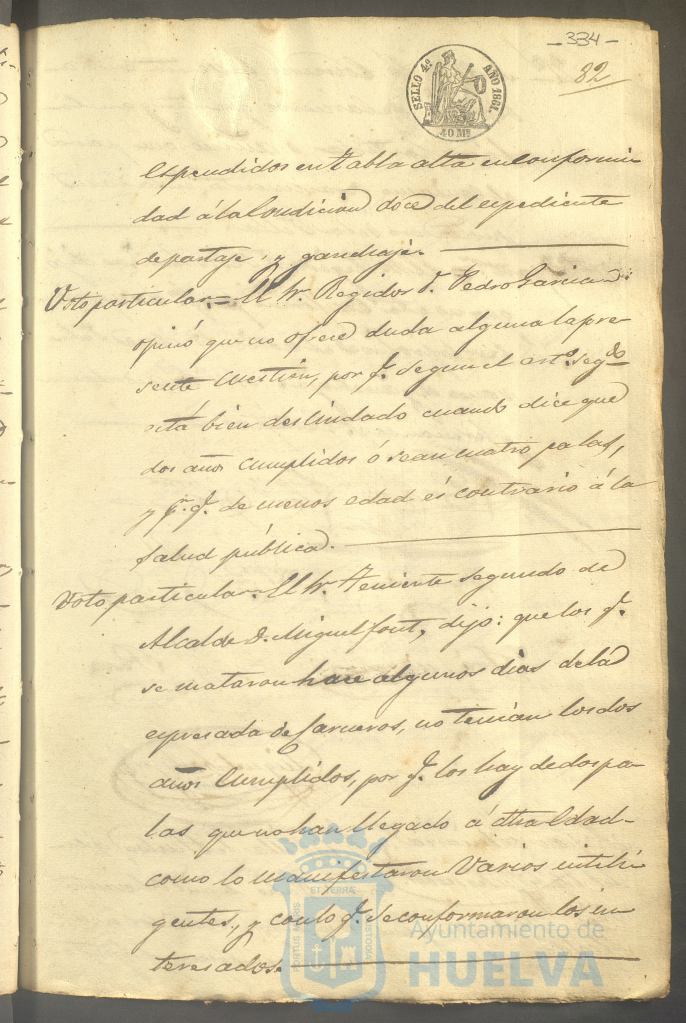 -334-
82
SELLO 4º AÑO 1861.
40 Ms
espendidos en tabla alta en conformi
dad á la Condicion doce del espediente
de partaje, y ganchaje.
Voto particular = El Sr. Regidor D. Pedro Garcia
opinó que no ofrece duda alguna la pre
sente Cuestion, por q. segun el artº. segdo
está bien deslindado cuando dice que
dos años Cumplidos ó sean cuatro palas,
y q. de menos edad és contrario á la
salud pública.
Voto particular. El Sr. Teniente segundo de
Alcalde D. Miguel font, dijo: que los q.
se mataron hace algunos dias de la
espresada de Carneros, no tenian los dos
años Cumplidos, por q. los hay de dos pa-
las que no han llegado á dha Edad-
como lo manifestaron Varios inteli
gentes, y con lo q. se conformaron los in
teresados.
Ayuntamiento de
HUELVA